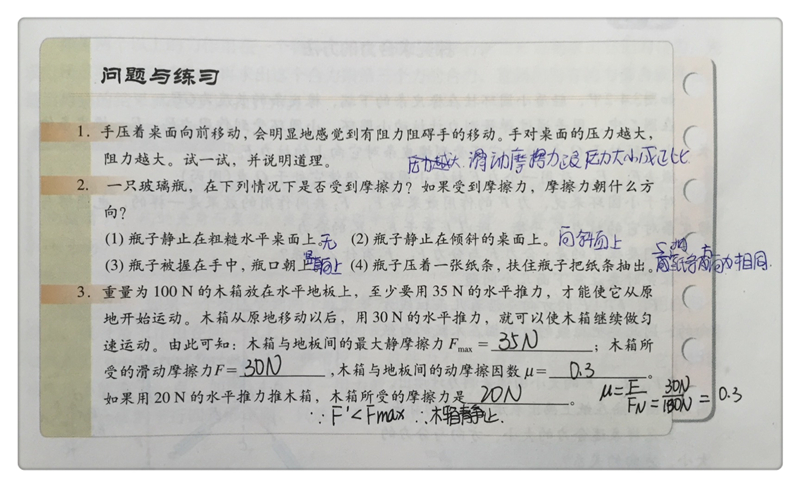 问题与练习
1. 手压着桌面向前移动，会明显地感觉到有阻力阻碍手的移动。手对桌面的压力越大，
阻力越大。试一试，并说明道理。 压力越大 滑动摩擦力 压力大小成正比
2. 一只玻璃瓶，在下列情况下是否受到摩擦力？如果受到摩擦力，摩擦力朝什么方
向？
(1) 瓶子静止在粗糙水平桌面上。无 (2) 瓶子静止在倾斜的桌面上。向斜面上
(3) 瓶子被握在手中，瓶口朝上 向上 (4) 瓶子压着一张纸条，扶住瓶子把纸条抽出。 方向相同.
3. 重量为 100 N 的木箱放在水平地板上，至少要用 35 N 的水平推力，才能使它从原
地开始运动。木箱从原地移动以后，用 30 N 的水平推力，就可以使木箱继续做匀
速运动。由此可知：木箱与地板间的最大静摩擦力 Fmax = 35N ；木箱所
受的滑动摩擦力F= 30N ,木箱与地板间的动摩擦因数 μ= 0.3 。
如果用 20 N 的水平推力推木箱，木箱所受的摩擦力是 20N 。 μ=F/FN=30N/100N=0.3
∵F'<Fmax ∴木箱静止.